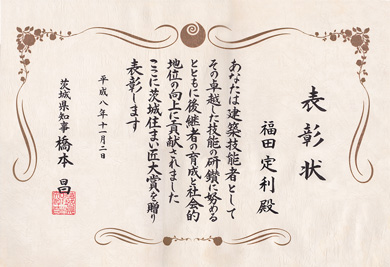 表彰状
福田定利殿
あなたは建築技能者として
その卓越した技能の研鑽に努める
とともに後継者の育成と社会的
地位の向上に貢献されました
ここに茨城住まい匠大賞を贈り
表彰します
平成八年十一月二日
茨城県知事 橋本 昌